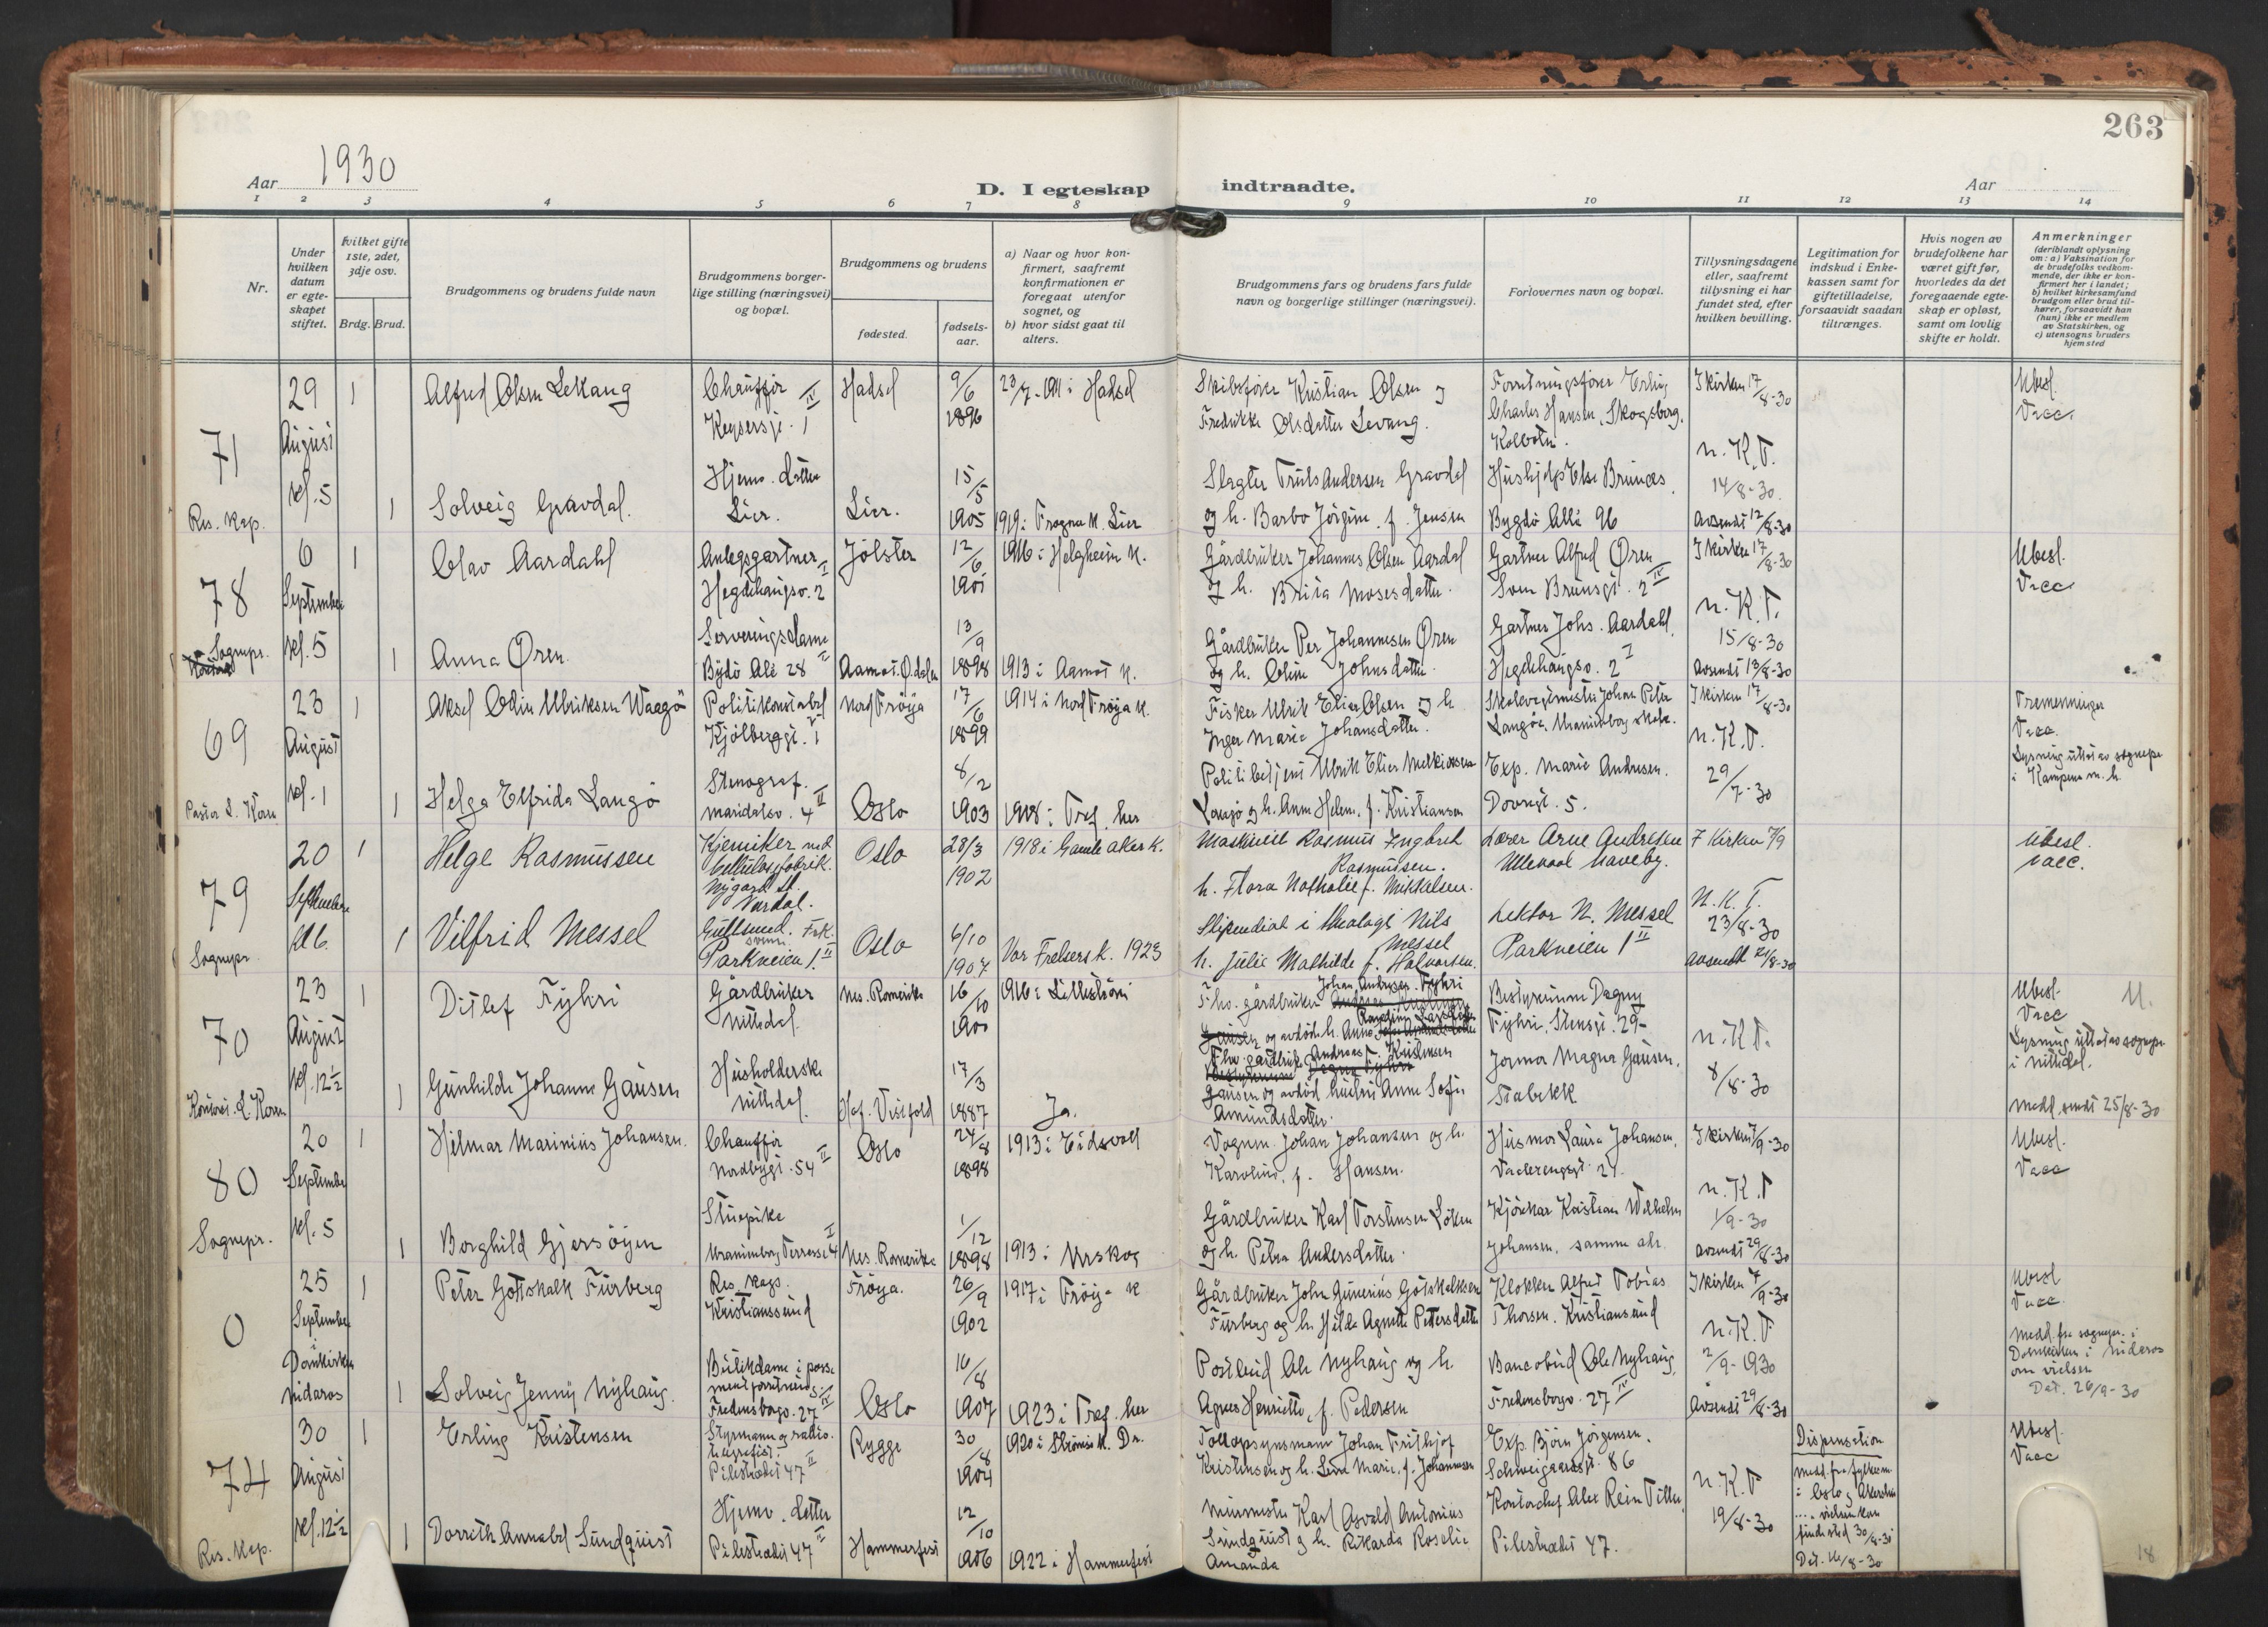 263
Aar 1930
D. I egteskap indtraadte.
Aar
1 2 3 4 5 6 7 8 9 10 11 12 13 14
Nr.
Under hvilken datum er egteskapet stiftet.
hvilket gifte 1ste, 2det, 3dje osv.
Brdg. Brud.
Brudgommens og brudens fulde navn
Brudgommens borgerlige stilling (næringsvei) og bopæl.
Brudgommens og brudens
fødested.
fødselsaar.
a) Naar og hvor konfirmert, saafremt konfirmationen er foregaat utenfor sognet, og
b) hvor sidst gaat til alters.
Brudgommens fars og brudens fars fulde navn og borgerlige stillinger (næringsvei).
Forlovernes navn og bopæl.
Tillysningsdagene eller, saafremt tillysning ei har fundet sted, efter hvilken bevilling.
Legitimation for indskud i Enkekassen samt for giftetilladelse, forsaavidt saadan tiltrænges.
Hvis nogen av brudefolkene har været gift før, hvorledes da det foregaaende egteskap er opløst, samt om lovlig skifte er holdt.
Anmerkninger (deriblandt oplysning om: a) Vaksination for de brudefolks vedkommende, der ikke er konfirmert her i landet; b) hvilket kirkesamfund brudgom eller brud tilhører, forsaavidt han (hun) ikke er medlem av Statskirken, og c) utensogns bruders hjemsted
71
Res. Kap.
29 August kl. 5
1
Alfred Olsen Lekang
Chauffør
Keysersgt. 1 IV
Hadsel
9/6 1896
23/7-1911 i Hadsel
Skibsfører Kristian Olsen og
Fredrikke Olsdatter Levang.
Forretningsfører Erling
Charles Hansen, Skogsborg,
Kolbotn.
I kirken 17/8-30
Ubesl.
Vacc.
1
Solveig Gravdal.
Hjemv. datter
Lier.
Lier.
15/5 1905
1919 i Frogner K. Lier
Slagter Truls Andersen Gravdal
og h. Barbo Jörgine, f. Jensen
Hushjelp Else Brunæs,
Bygdö Allé 96
n. K. T.
14/8-30.
Avsendt 12/8-30
78
Sognepr.
6 September kl. 5
1
Olav Aardahl
Anlegsgartner
Hegdehaugsv. 2 I
Jölster
12/6 1901
1916 i Helgheim K.
Gårdbruker Johannes Olsen Aardal
og h. Brita Mosesdatter.
Gartner Alfred Øren
Sven Brunsgt. 2 IV
I kirken 17/8-30
Ubesl.
Vacc
1
Anna Øren
Serveringsdame
Bydö Alé 28 II
Aamot. Ødalen
13/9 1898
1913 i Aamot K.
Gårdbruker Per Johannesen Øren
og h. Oline Johnsdatter.
Gartner Johs. Aardahl,
Hegdehaugsv. 2 I
n. K. T.
15/8-30
Avsendt 13/8-30
69
Pastor L. Koren
23 August kl. 1
1
Aksel Odin Ulriksen Waagö
Politikonstabel
Kjölberggt. 1
Nord Fröya
17/6 1899
1914 i Nord Fröya K.
Fisker Ulrik Elias Olsen og h.
Inger Marie Johansdatter.
Skolevaktmester Johan Peter
Langöe, Uranienborg skole.
I kirken 17/8-30
Tremenninger
Vacc.
Lysning utført av sognepr.
i Kampens m.h.
1
Helga Elfrida Langö
Stenograf.
Maridalsv. 4 II
Oslo
8/2 1903
1918 i Tref. her
Politibetjent Ulrik Elias Melkiorsen
Langö og h. Anna Helene, f. Kristiansen
Exp. Marie Andresen.
Dovregt. 5.
n. K. T.
29/7-30
79
Sognepr.
20 September kl 6.
1
Helge Rasmussen
Kjemiker ved
Cellulosefabrik.
Nygard st.
Vardal.
Oslo
28/3 1902
1918 i Gamle Aker K.
Maskinist Rasmus Engbret
Rasmussen.
h. Flora Nathalie f. Mikkelsen.
Lærer Arne Andresen
Ullevaal Haveby.
I Kirken 7/9
Ubesl.
vacc.
1
Vilfrid Messel
Gullsmed. Frk.
svenn.
Parkveien 1. II
Oslo
6/10 1907
Vor Frelsers k. 1923
Stipendiat i theologi Nils
Messel
h. Julie Mathilde f. Halvorsen.
Lektor N. Messel
Parkveien 1 II
N. K. T.
23/8-30
avsendt 21/8-30
70
Konst. L. Koren
23 August kl. 12½
1
Ditlef Fyhri
Gårdbruker
Nittedal.
Nes. Romerike
16/10 1900
1916 i Lilleström
Fhv. gårdbruker Johan Andersen Fyhri
og avdöde h. Anna
Bestyrerinne Dagny
Fyhri, Stensgt. 29
Ubesl.
Vacc
Lysning utført av sognepr.
i Nittedal.
U.
1
Gunhilde Johanne Gausen
Husholderske
Nittedal.
Hof. Vestfold
17/3 1887
Ja.
Fhv. gårdbruker Andreas F. Kristensen
Gausen og avdöd hustru Anne Sofie
Amundsdatter.
Jomar Magnar Gausen,
Stabekk
n. K. T.
8/8-30
Medd. sendt 25/8-30
80
Sognepr.
20 September kl. 5
1
Hilmar Marinius Johansen.
Chauffør
Nordbygt. 54 II
Oslo
24/8 1898
1913 i Eidsvoll
Vognm. Johan Johansen og h.
Karoline, f. Hansen.
Husmor Laura Johansen,
Vaalerenggt. 21.
I kirken 7/9-30
Ubesl.
Vacc
1
Borghild Gjersöyen
Stuepike
Uranienborg Terrasse 4 I
Nes. Romerike
1/12 1898
1913 i Urskog
Gårdbruker Karl Torstensen Löken
og h. Petra Andersdatter.
Kjörekar Kristian Wilhelm
Johansen, samme adr.
n. K. T
1/9-30
Avsendt 29/8-30
0
25 September i Domkirken Nidaros
1
Peter Gottskalk Furberg
Res. kap.
Kristianssund
Fröya.
26/9 1902
1917 i Fröya K
Gårdbruker John Gunerius Gotskalksen
Furberg og h. Hilda Agnette Pettersdatter
Klokker Alfred Tobias
Thorsen. Kristiansund
I kirken 7/9-30
Ubesl
Vacc.
Medd. fra sognepr. i
Domkirken i Nidaros
om vielsen
Dat. 26/9-30
1
Solveig Jenny Nyhaug.
Butikdame i posse
mentforretning
Fredensborgv. 27 IV
Oslo
16/8 1907
1923 i Tref. her
Postbud Ole Nyhaug og h.
Agnes Henriette, f. Pedersen
Bancobud Ole Nyhaug,
Fredensborgv. 27 IV
n. K. T.
2/9-1930
Avsendt 29/8-30
74
Res. Kap.
30 August kl. 12½
1
Erling Kristensen
Styrmann og radio-
telegrafist.
Pilestrædet 47 II
Rygge
30/8 1904
1920 i Strömsö K. Dr.
Tollopsynsmann Johan Frithjof
Kristensen og h. Lina Marie, f. Johannessen
Exp. Björn Jörgensen.
Schweigaardsgt. 86
Dispensation
Medd. fra fylkesm.
i Oslo og Akershus
vielsen kan
finde sted 30/8-30
Ubesl.
Vacc
1
Dorrith Annabel Sundquist
Hjemv. datter
Pilestrædet 47 II
Hammerfest
12/10 1906
1922 i Hammerfest
Karl Osvald Antonius
Sundquist og h. Rikarda Roselie
Amanda
Kontorchef Alex Rein
Pilestrædet 47.
n. K. T
19/8-30
18